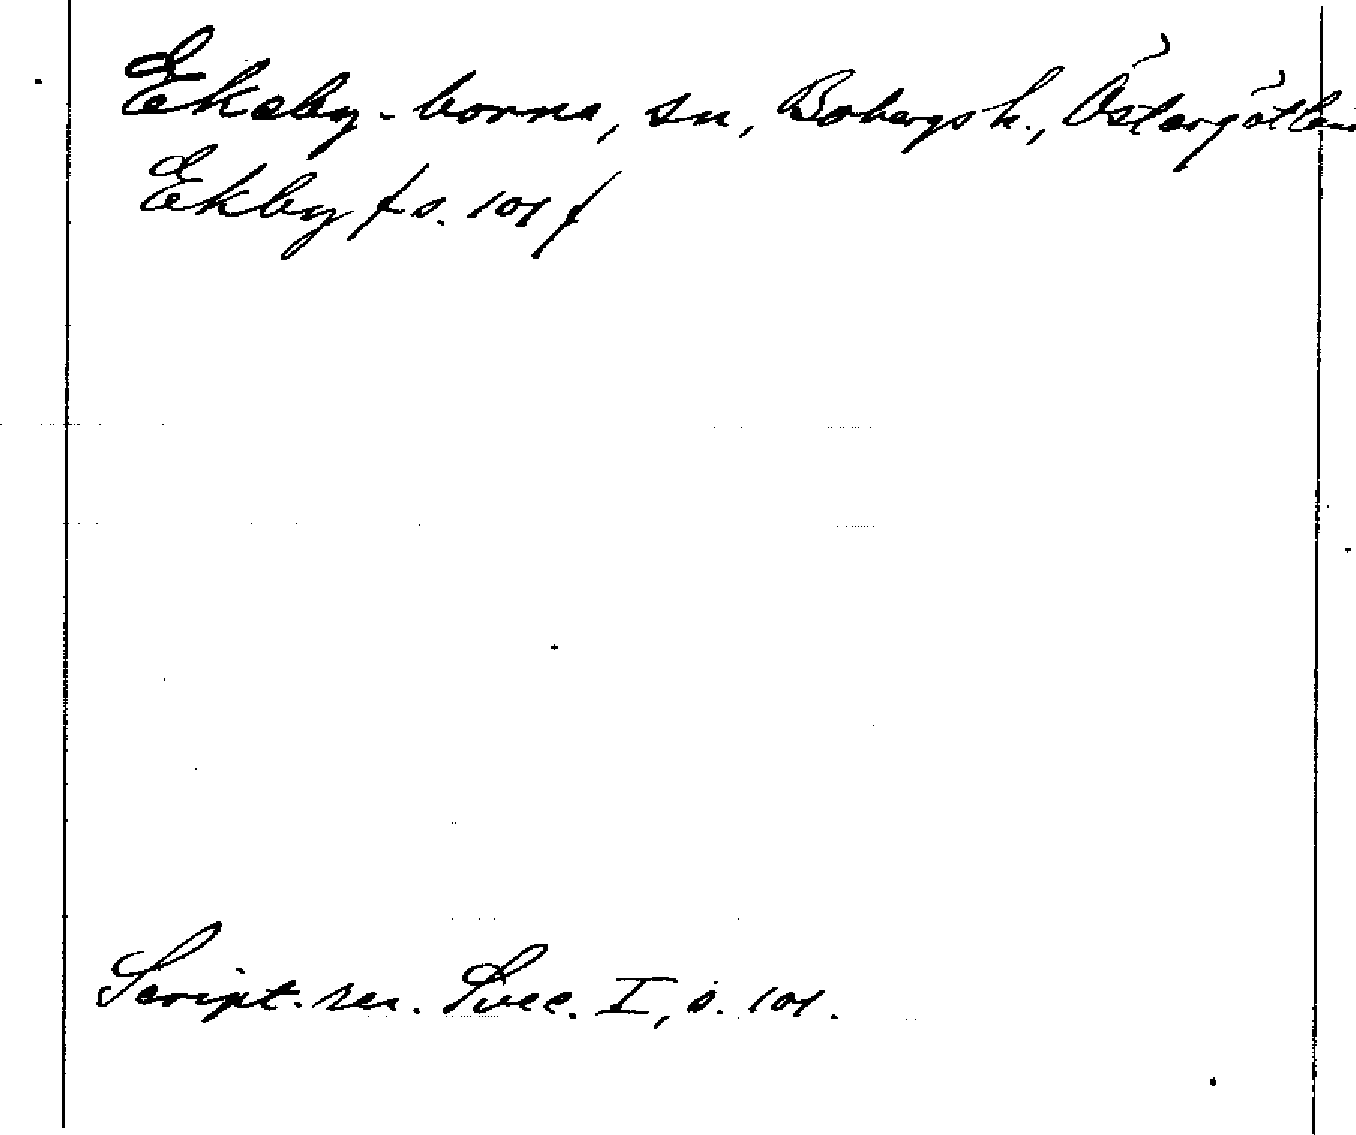 Ekeby-borna, sn, Bobergs h., Östergötlan
Ekby / s. 101 /
Script. rer. Svec. I, s. 101.